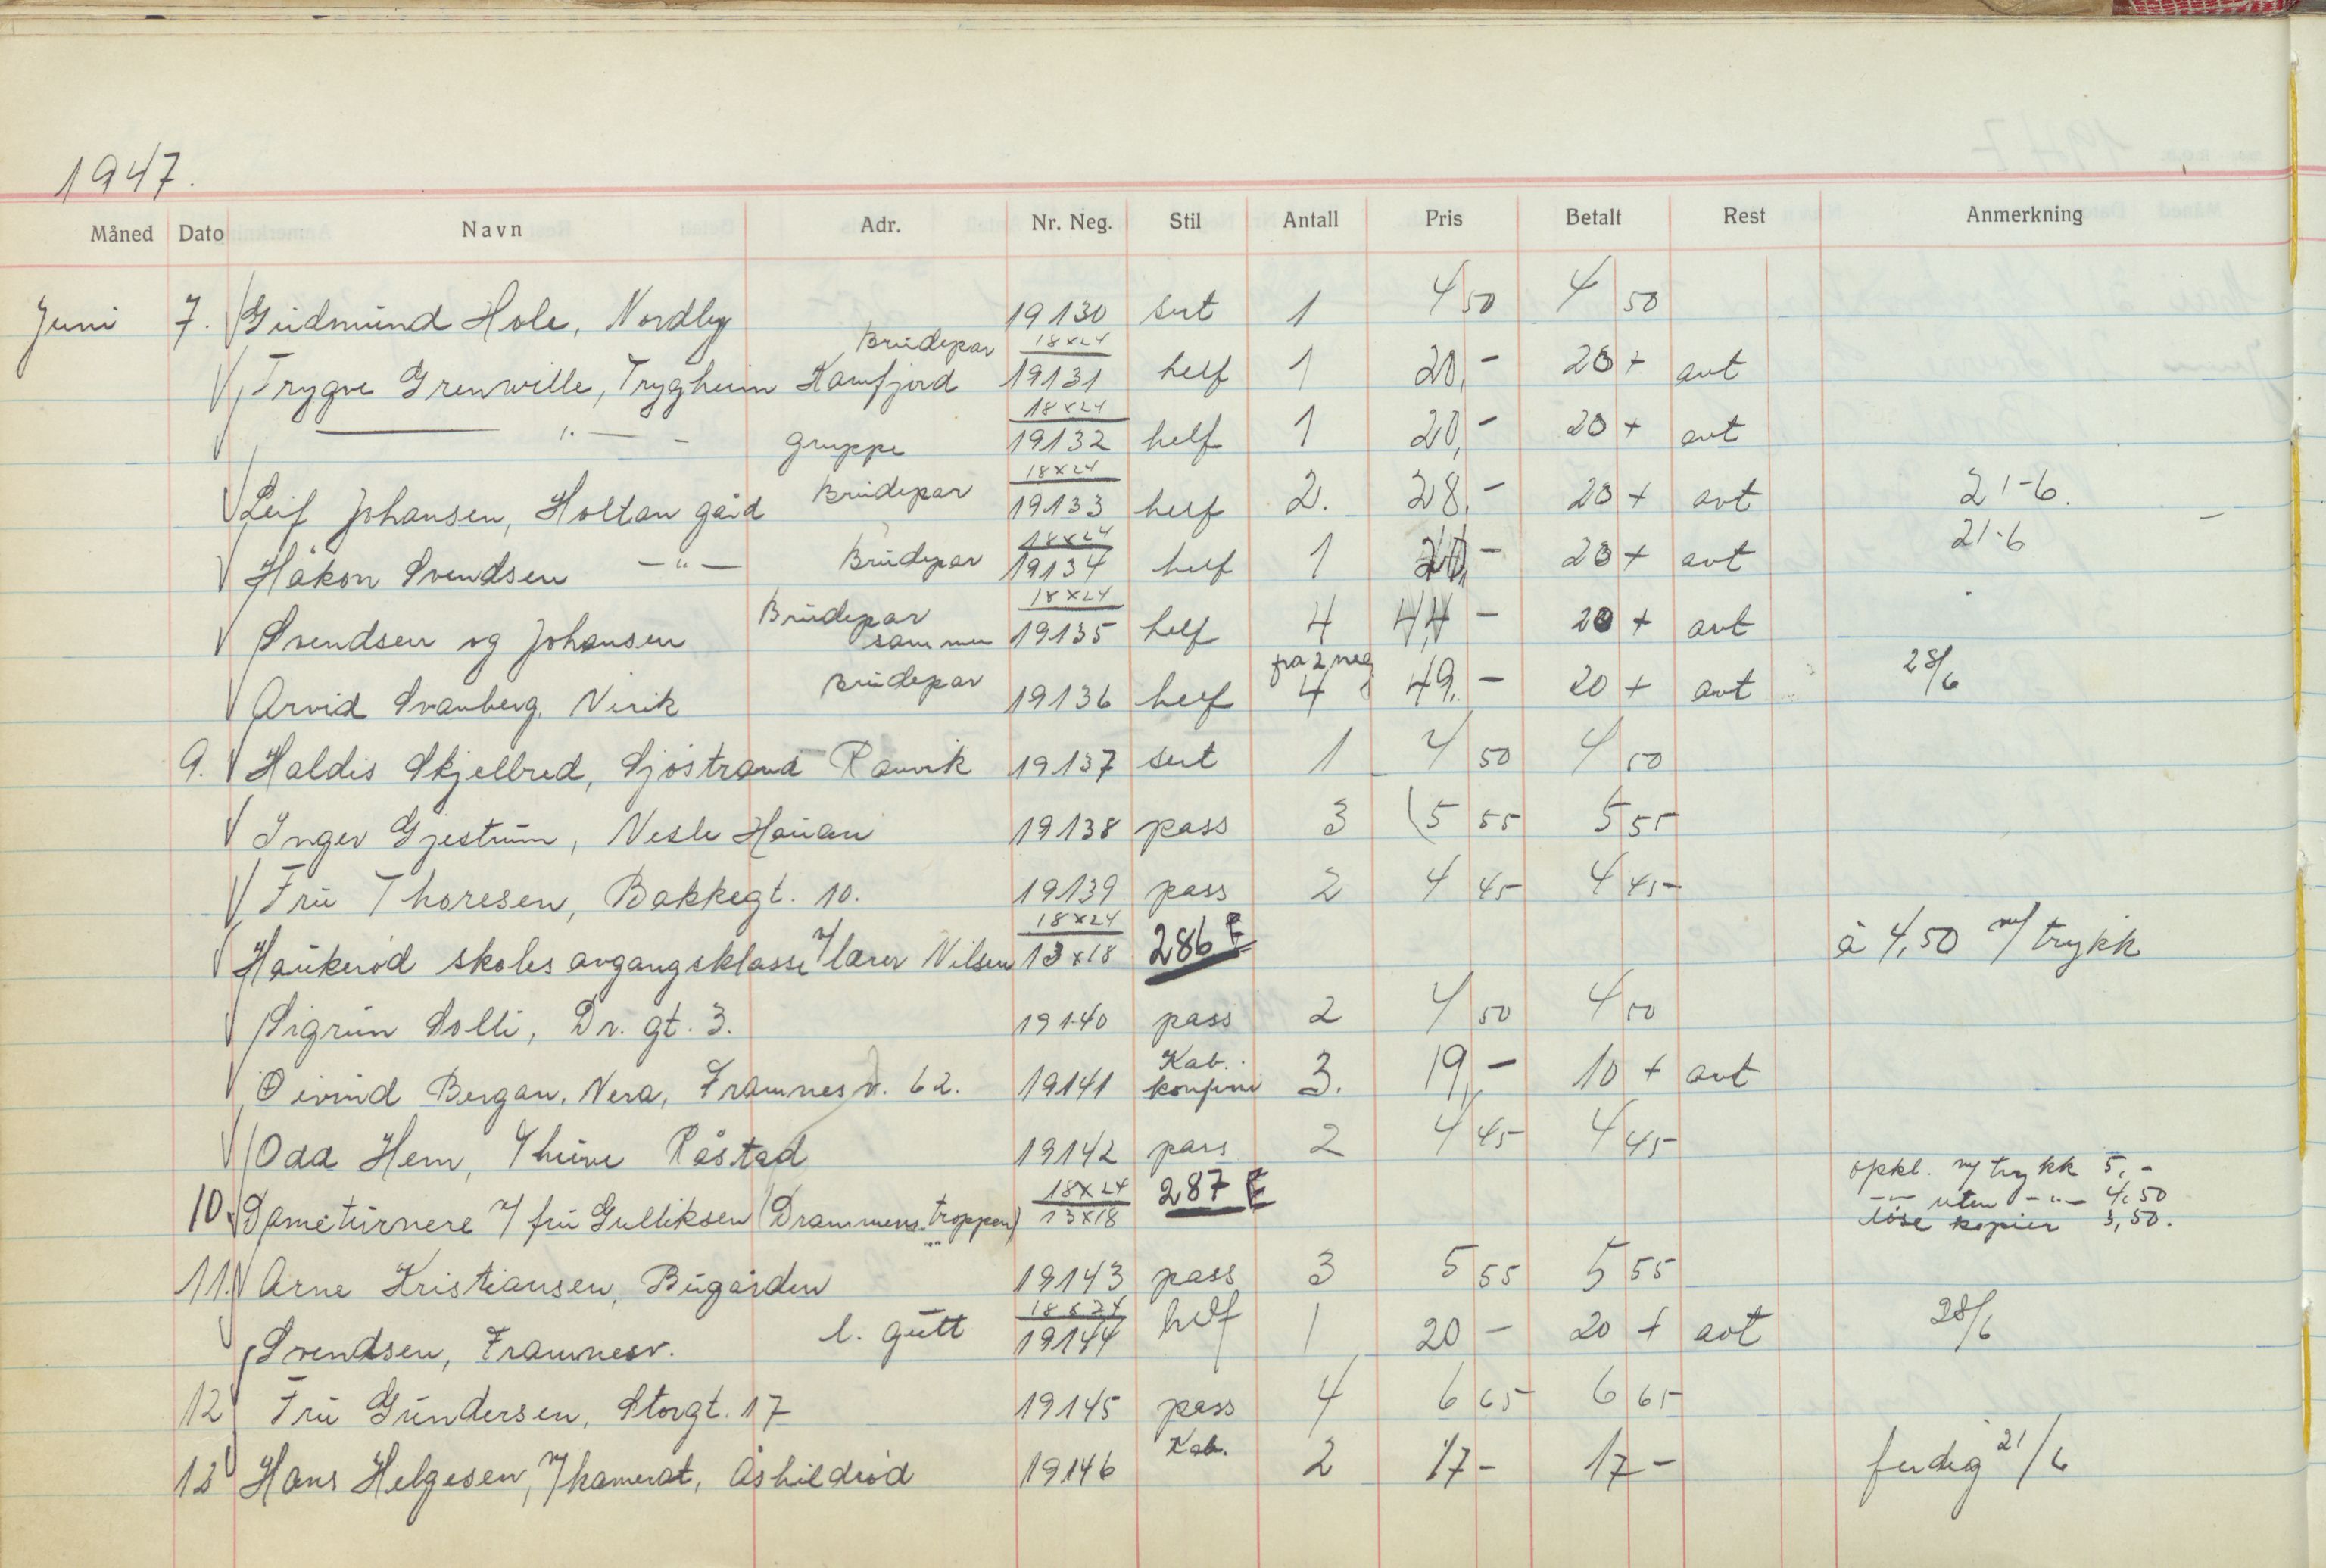 1947.
Måned Dato Navn Adr. Nr. Neg. Stil Antall Pris Betalt Rest Anmerkning
Juni 7. Gudmund Hole, Nordby 19130 sert 1 4 50 4 50
Trygve Grenwille, Trygheim Kamfjord Brudepar 18x24 19131 helf 1 20,- 20 + avt
— " — gruppe 18x24 19132 helf 1 20,- 20 + avt
Leif Johansen, Holtan gård Brudepar 18x24 19133 helf 2. 28,- 20 + avt 21-6.
Håkon Svendsen — " — Brudepar 18x24 19134 helf 1 - 20 + avt 21-6
Svendsen og Johansen Brudepar sammen 18x24 19135 helf 4 44 - 20 + avt
Arvid Svanberg, Virik Brudepar 19136 helf fra 2 neg 4 49,- 20 + avt 28/6
9. Haldis Skjelbred, Sjöstrand Ranvik 19137 sert 1 4 50 4 50
Inger Gjestrum, Nesle Hauan 19138 pass 3 5 55 5 55
Fru Thoresen, Bakkegt. 10. 19139 pass 2 4 45 4 45
Haukeröd skoles avgangsklasse v/ lærer Nilsen 18x24 13x18 286 E à 4,50 m/ trykk
Sigrun Solli, Dr. gt. 3. 19140 pass 2 4 50 4 50
Øivind Bergan, Nera, Framnesv. 62. 19141 Kab. konfirm 3. 19,- 10 + avt
Odd Hem, Thuve Råstad 19142 pass 2 4 45 4 45
10. Dameturnere v/ fru Gulliksen (Drammens troppen) 18x24 13x18 287 E opkl. m/ trykk 5,-
— " — uten — " — 4,50
löse kopier 3,50.
11. Arne Kristiansen, Bugården 19143 pass 3 5 55 5 55
Svendsen, Framnesv. l. gutt 18x24 19144 helf 1 20 - 20 + avt 28/6
12 Fru Gundersen, Storgt. 17 19145 pass 4 6 65 6 65
13 Hans Helgesen, m/ kamerat, Åshildröd 19146 Kab. 2 17 - 17 - ferdig 21/6